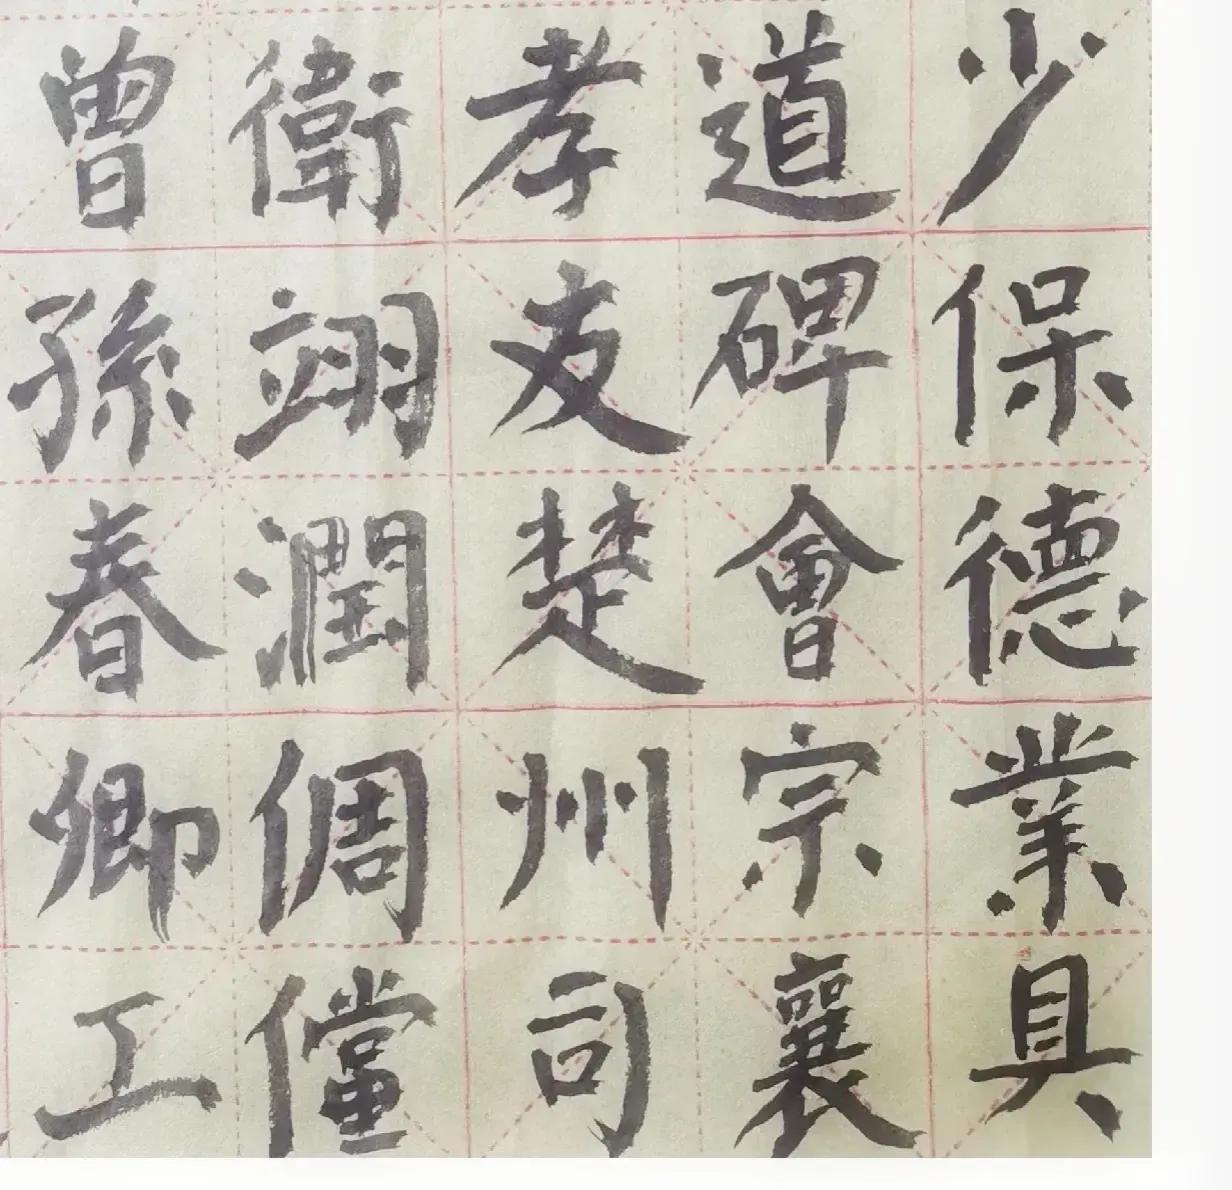 少保德業具
道碑會宗襄
孝友楚州司
衛翊潤倜儻
曾孫春卿工